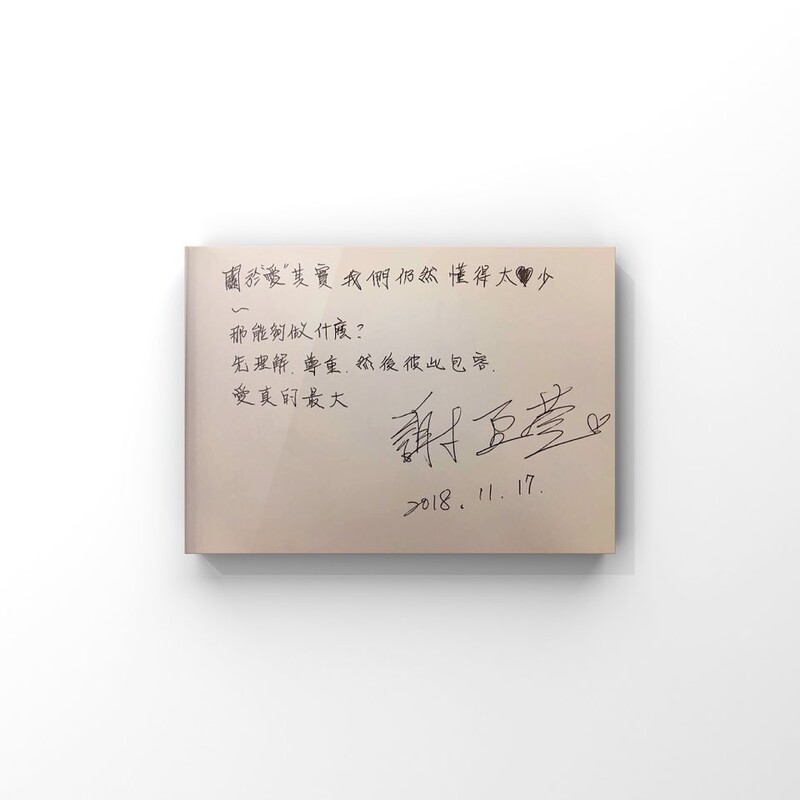 關於"愛"其實我們仍然懂得太♥少
~
那能夠做什麼?
先理解.尊重.然後彼此包容.
愛真的最大
謝
2018.11.17.